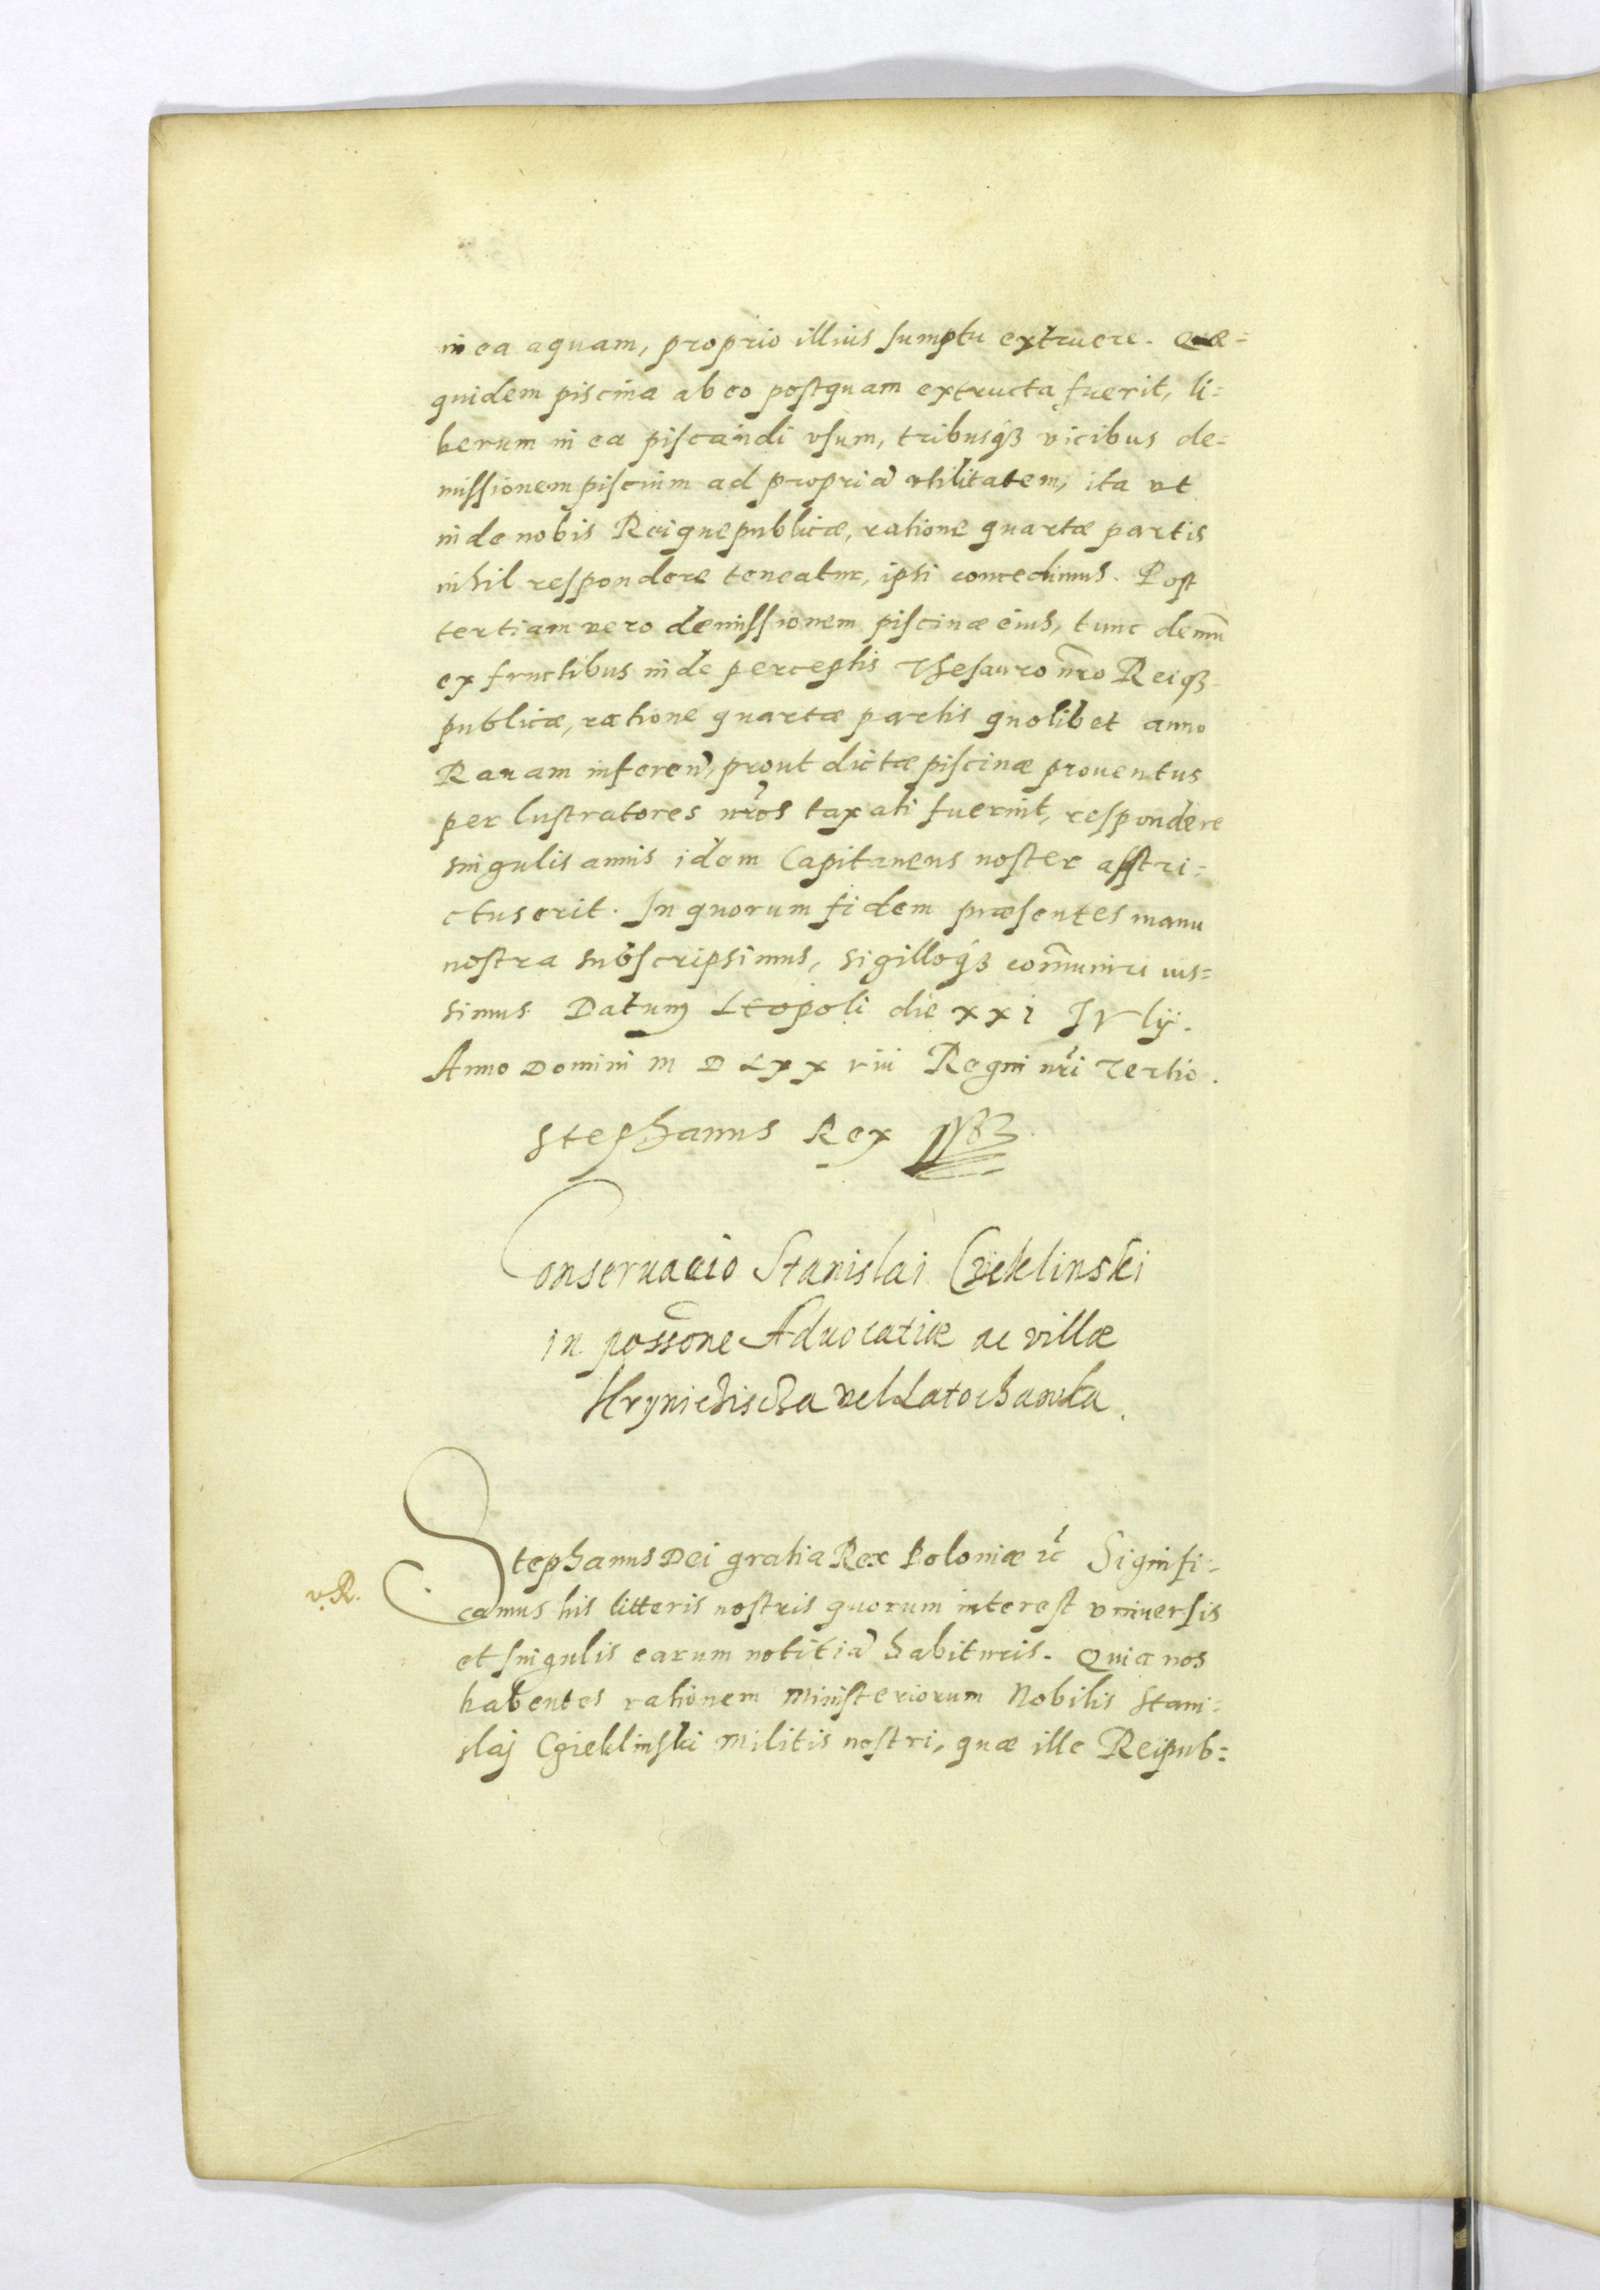 in ea aquam, proprio illius sumptu extruere. Quæ=
quidem piscina ab eo postquam extructa fuerit, li=
berum in ea piscandi vsum, tribusq3 vicibus de=
missionem piscium ad propriã vtilitatem, ita vt
inde nobis Reiquepublicæ, ratione quartæ partis
nihil respondere teneatur, ipsi concedimus. Post
tertiam vero demissionem piscinæ eius, tunc demũ
ex fructibus inde perceptis Thesauro nr̃o Reiq3
publicæ, ratione quartæ partis quolibet anno
Rauam inferen̄, prout dictæ piscinæ prouentus
per lustratores nr̃os taxati fuerint, respondere
singulis annis idem Capitaneus noster asstri=
ctus erit. In quorum fidem præsentes manu
nostra subscripsimus, sigilloq3 com̃uniri ius=
simus Datum Leopoli die xxi IVlij.
Anno Domini M D Lxx viii Regni nr̃i Tertio.
Stephanus Rex
Conseruacio Stanislai Czieklinski
in possõne Aduocatiæ ac villæ
Hrynichischa vel Latochawka.
Stephanus Dei gratia Rex Poloniæ ꝛc̃ Signifi=
v. R.
camus his litteris nostris quorum interest vniuersis
et singulis earum notitiã habituris. Quia nos
habentes rationem ministeriorum Nobilis Stani=
slaj Cgieklinski militis nostri, quæ ille Reipub=